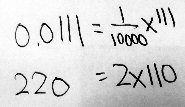 0.0111 = 1/10000 x 111
220 = 2x110